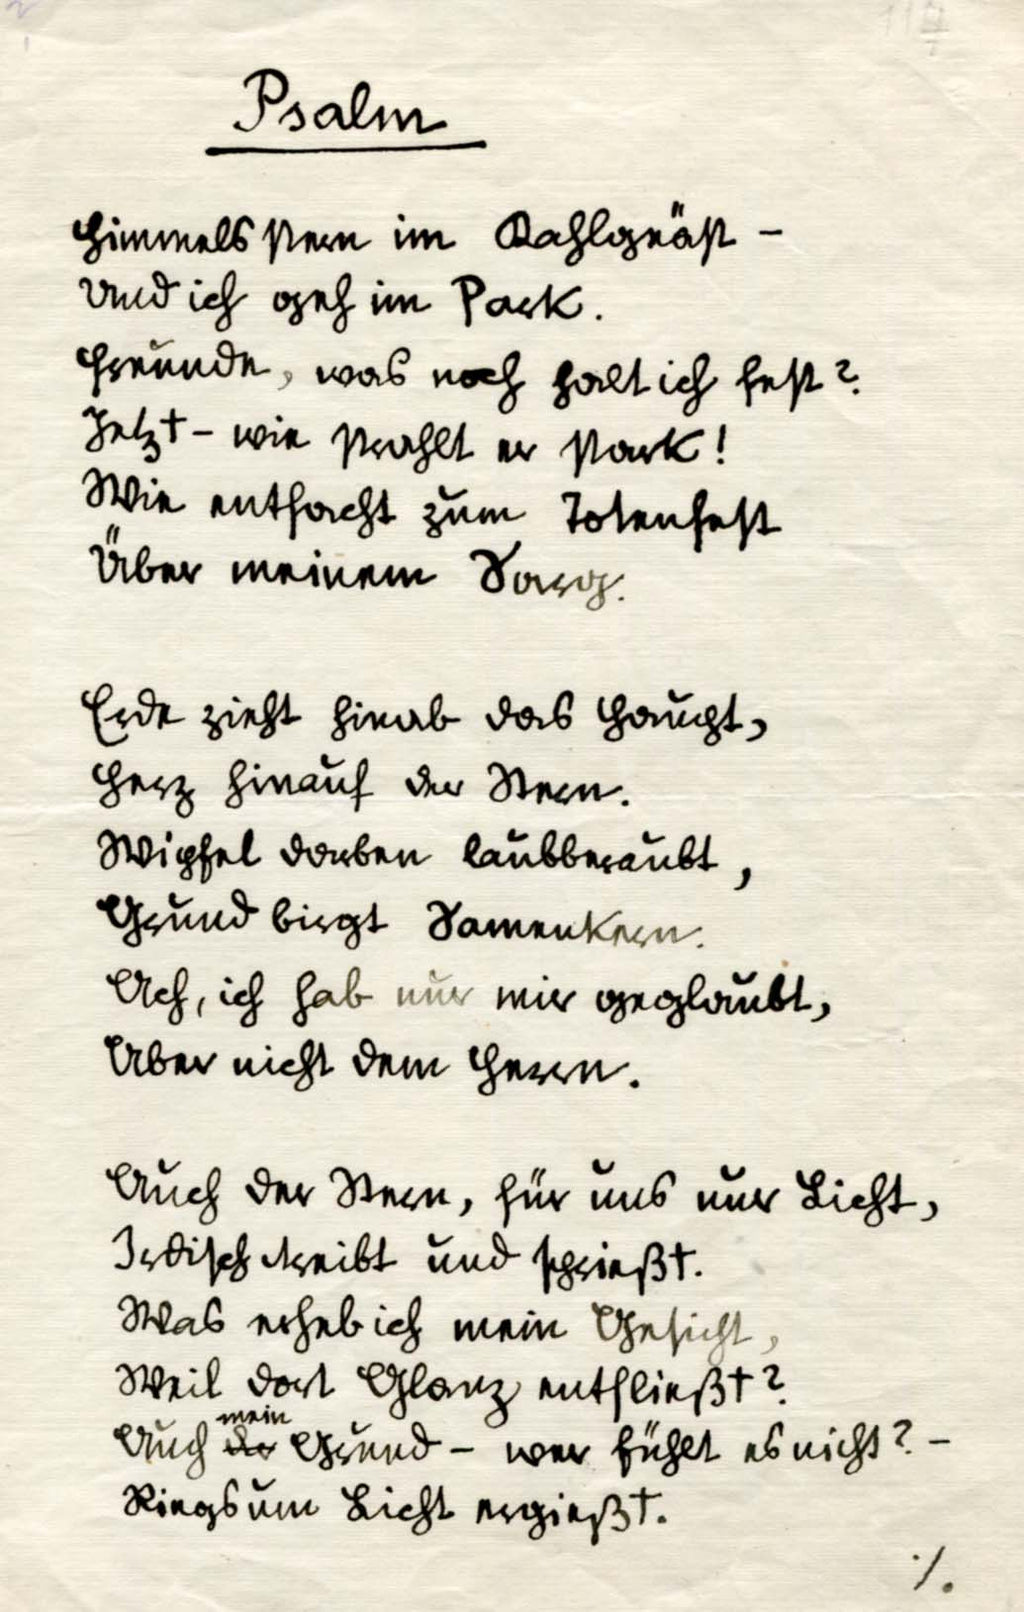 Psalm
Himmelsstern im Kahlgeäst –
Und ich geh im Park.
Freunde, was noch halt ich fest?
Jetzt – wie strahlt er stark!
Wie entfacht zum Totenfest
Über meinem Sarg.
Erde zieht hinab das Haupt,
Herz hinauf der Stern.
Wipfel darben laubberaubt,
Grund birgt Samenkern.
Ach, ich hab nur mir geglaubt,
Aber nicht dem Herrn.
Auch der Stern, für uns nur Licht,
Irdisch treibt und sprießt.
Was erheb ich mein Gesicht,
Weil dort Glanz entfließt?
mein
Auch der Grund – wer fühlt es nicht? –
Ringsum Licht ergießt.
./.